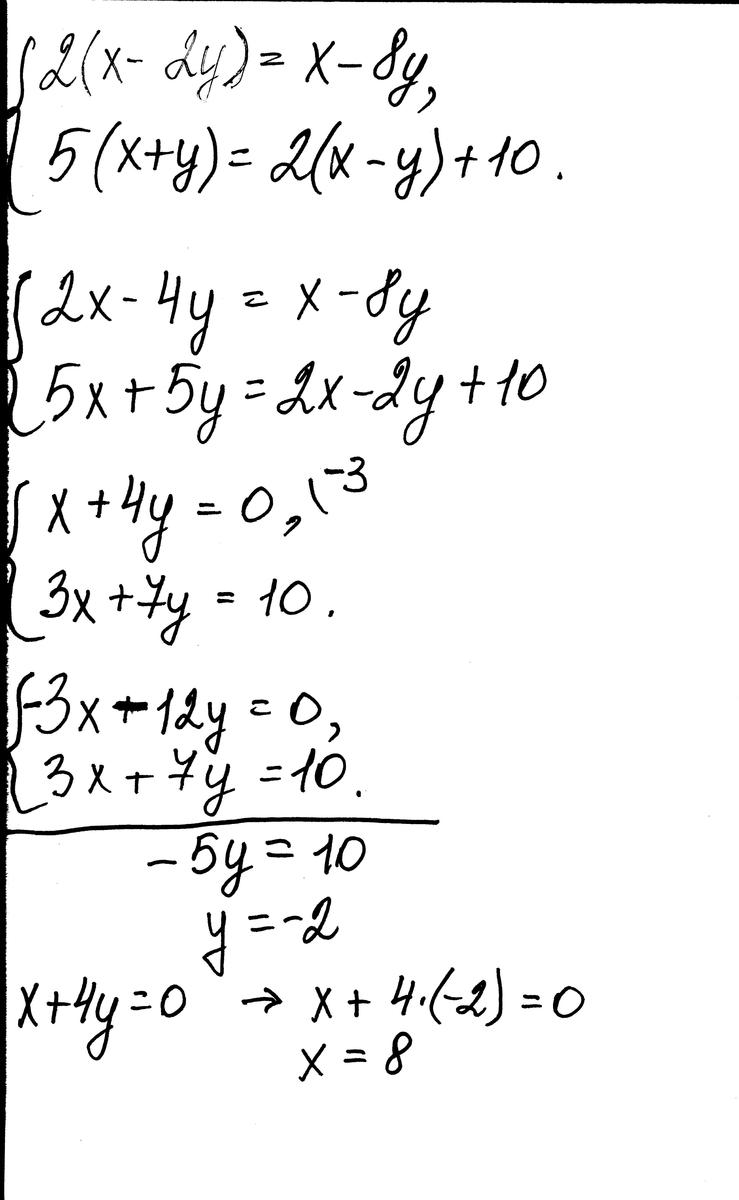 { 2(x - 2y) = x - 8y,
5(x+y) = 2(x-y) + 10.
{ 2x - 4y = x - 8y
5x + 5y = 2x - 2y + 10
{ x + 4y = 0, \ -3
3x + 7y = 10.
{ -3x - 12y = 0,
3x + 7y = 10.
-5y = 10
y = -2
x+4y=0 → x + 4·(-2) = 0
x = 8